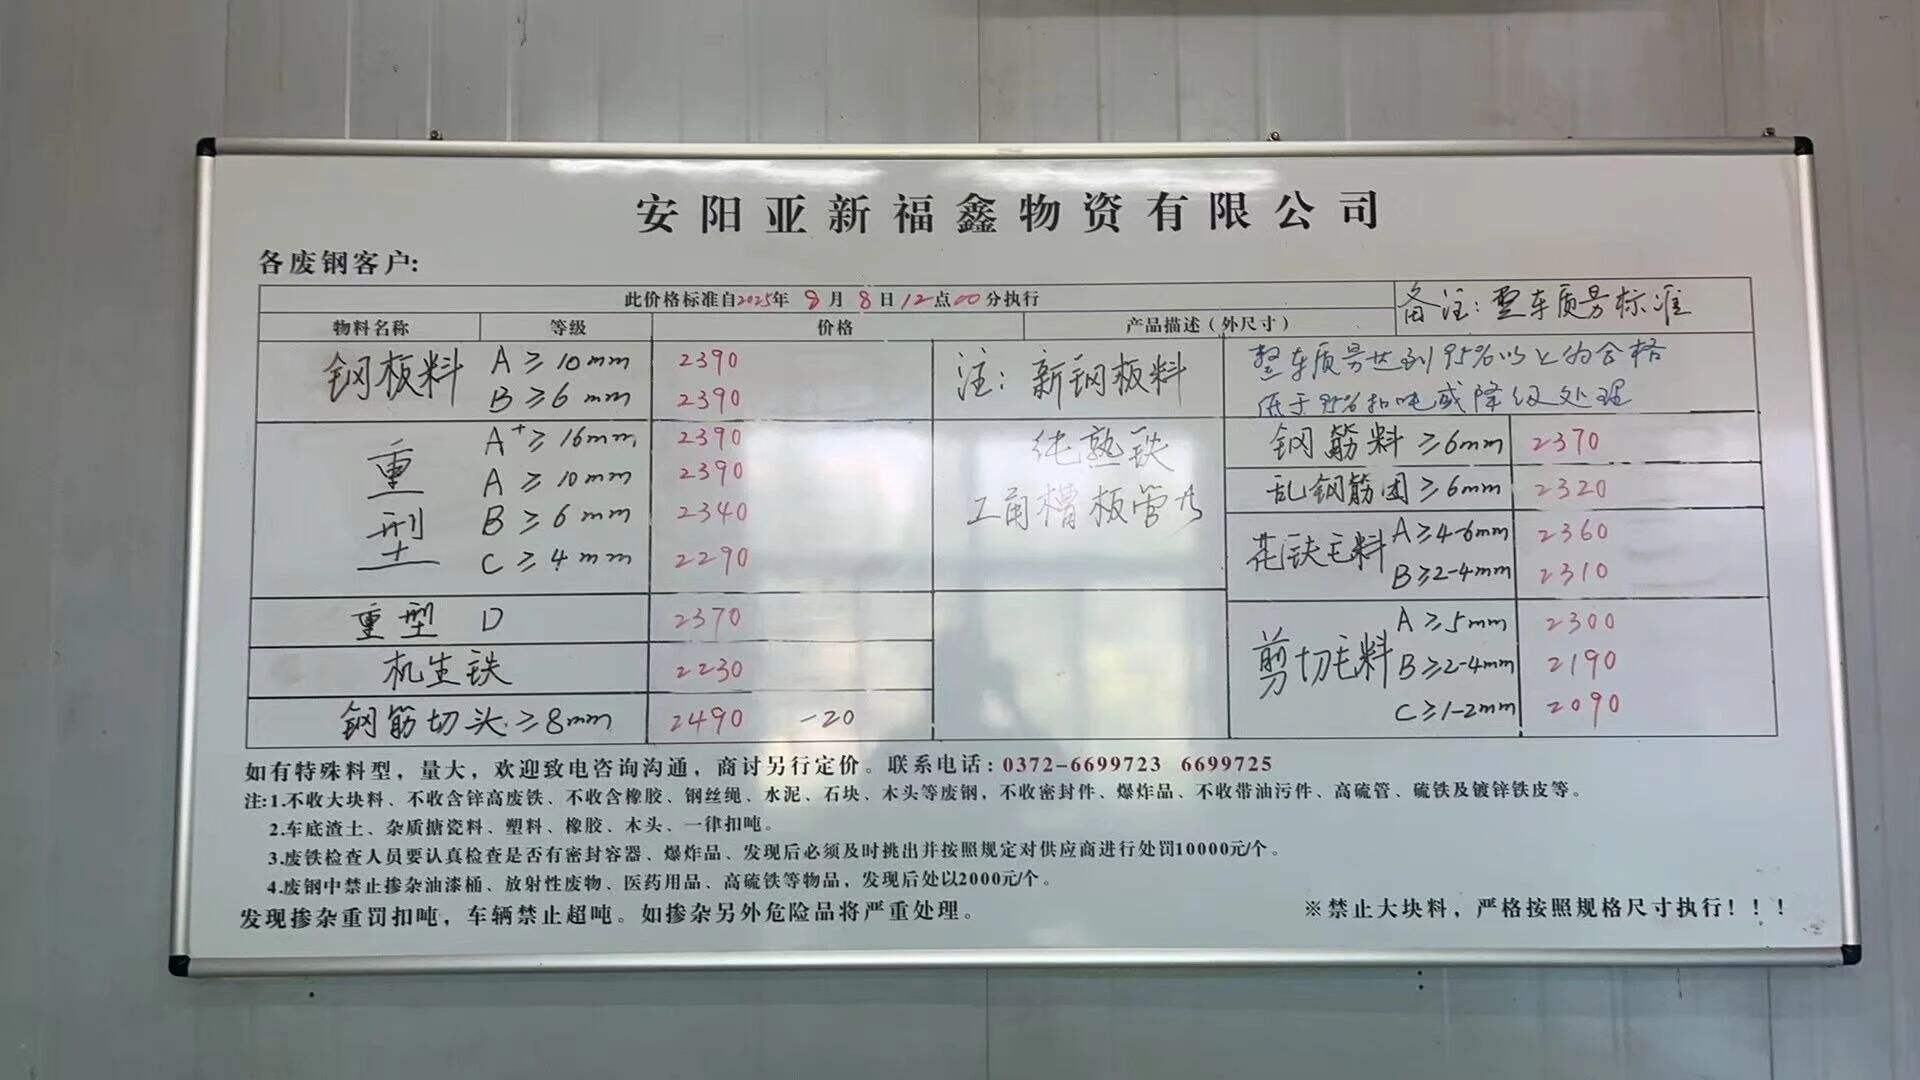 安阳亚新福鑫物资有限公司
各废钢客户:
此价格标准自2025年 8月 8日12点00分执行
备注: 整车质量标准
物料名称 等级 价格 产品描述(外尺寸)
钢板料 A ≥ 10mm 2390
B ≥ 6 mm 2390
注: 新钢板料
整车质量达到95%以上为合格
低于95%扣吨或降级处理
重型 A⁺ ≥ 16mm 2390
A ≥ 10mm 2390
B ≥ 6mm 2340
C ≥ 4mm 2290
纯熟铁
工角槽板管
钢筋料 ≥6mm 2370
乱钢筋团 ≥6mm 2320
花铁毛料 A≥4-6mm 2360
B≥2-4mm 2310
重型 D 2370
机生铁 2230
钢筋切头 ≥8mm 2490 -20
剪切毛料 A ≥5mm 2300
B≥2-4mm 2190
C≥1-2mm 2090
如有特殊料型，量大，欢迎致电咨询沟通，商讨另行定价。联系电话：0372-6699723 6699725
注:1.不收大块料、不收含锌高废铁、不收含橡胶、钢丝绳、水泥、石块、木头等废钢，不收密封件、爆炸品、不收带油污件、高硫管、硫铁及镀锌铁皮等。
2.车底渣土、杂质搪瓷料、塑料、橡胶、木头、一律扣吨。
3.废铁检查人员要认真检查是否有密封容器、爆炸品、发现后必须及时挑出并按照规定对供应商进行处罚10000元/个。
4.废钢中禁止掺杂油漆桶、放射性废物、医药用品、高硫铁等物品，发现后处以2000元/个。
发现掺杂重罚扣吨，车辆禁止超吨。如掺杂另外危险品将严重处理。
※禁止大块料，严格按照规格尺寸执行！！！